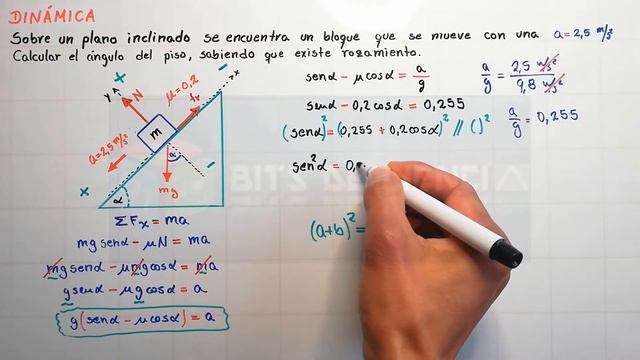 DINÁMICA
Sobre un plano inclinado se encuentra un bloque que se mueve con una a=2,5 m/s²
Calcular el ángulo del piso, sabiendo que existe rozamiento.
+
-
y
x
N
μ=0,2
fr
a=2,5m/s²
m
α
-
mg
+
α
ΣFx = ma
mg senα - μN = ma
mg senα - μmg cosα = ma
g senα - μg cosα = a
g(senα - μcosα) = a
senα - μcosα = a/g
senα - 0,2cosα = 0,255
(senα)² = (0,255 + 0,2cosα)² // ( )²
sen²α = 0,
(a+b)² =
a/g = 2,5 m/s² / 9,8 m/s²
a/g = 0,255